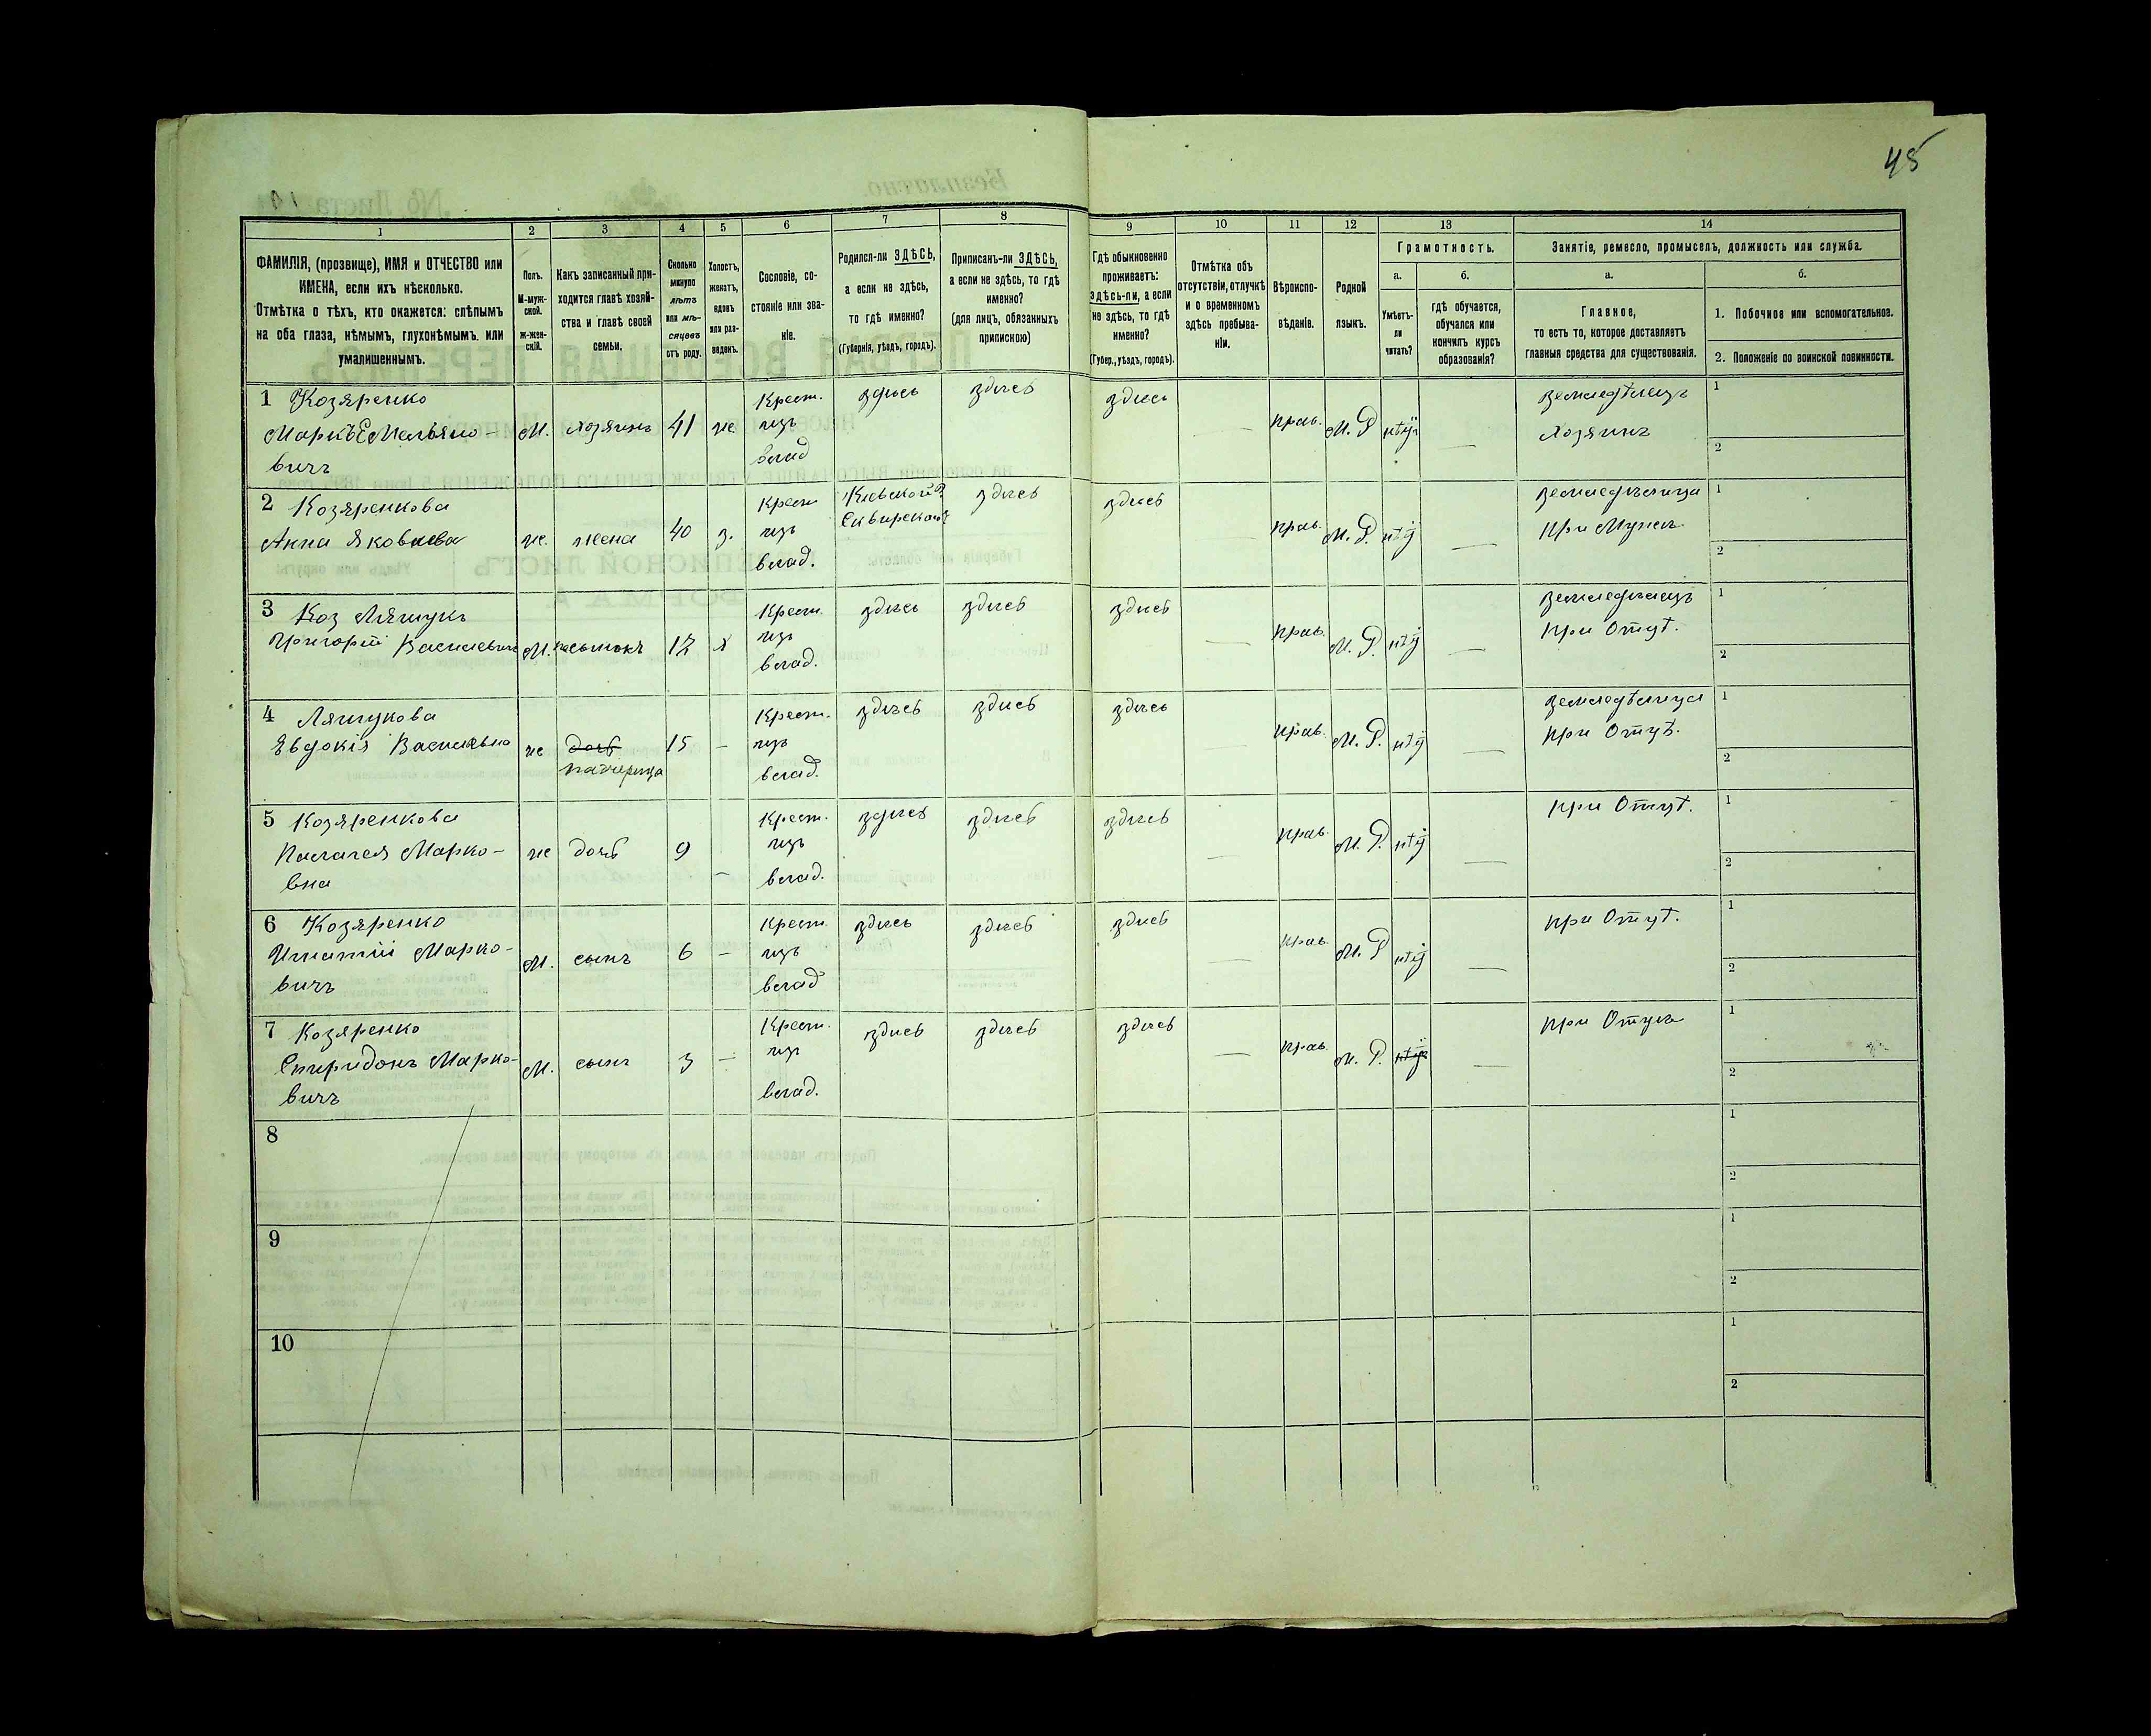 45
1
2
3
4
5
6
7
8
9
10
11
12
13
14
ФАМИЛІЯ, (прозвище), ИМЯ и ОТЧЕСТВО или
ИМЕНА, если ихъ нѣсколько.
Отмѣтка о тѣхъ, кто окажется: слѣпымъ
на оба глаза, нѣмымъ, глухонѣмымъ или
умалишеннымъ.
Полъ.
М-муж-
ской.
ж-жен-
скій.
Какъ записанный при-
ходится главѣ хозяй-
ства и главѣ своей
семьи.
Сколько
минуло
лѣтъ
или мѣ-
сяцевъ
отъ роду.
Холостъ,
женатъ,
вдовъ
или раз-
веденъ.
Сословіе, со-
стояніе или зва-
ніе.
Родился-ли ЗДѢСЬ,
а если не здѣсь,
то гдѣ именно?
(Губернія, уѣздъ, городъ).
Приписанъ-ли ЗДѢСЬ,
а если не здѣсь, то гдѣ
именно?
(для лицъ, обязанныхъ
припискою)
Гдѣ обыкновенно
проживаетъ:
здѣсь-ли, а если
не здѣсь, то гдѣ
именно?
(Губер., уѣздъ, городъ).
Отмѣтка объ
отсутствіи, отлучкѣ
и о временномъ
здѣсь пребыва-
ніи.
Вѣроиспо-
вѣданіе.
Родной
языкъ.
Грамотность.
а.
Умѣетъ-
ли
читать?
б.
гдѣ обучается,
обучался или
кончилъ курсъ
образованія?
Занятіе, ремесло, промыселъ, должность или служба.
а.
Главное,
то есть то, которое доставляетъ
главныя средства для существованія.
б.
1. Побочное или вспомогательное.
2. Положеніе по воинской повинности.
1 Козяренко
Маркъ Емельяно-
вичъ
М. хозяинъ 41 же.
Крест.
изъ
влад
здѣсь здѣсь здѣсь — прав. М. Р нѣтъ —
земледѣлецъ
хозяинъ
1
2
2 Козяренкова
Анна Яковлева
же. жена 40 з.
Крест
изъ
влад.
Кіевской г.
Сквирской
здѣсь здѣсь — прав. М. Р. нѣтъ —
земледѣлица
при мужѣ
1
2
3 Коз Ляшукъ
Григорій Василевичъ
М. пасынокъ 12 х
Крест.
изъ
влад.
здѣсь здѣсь здѣсь — прав. М. Р. нѣтъ —
земледѣлецъ
при Отцѣ.
1
2
4 Ляшукова
Евдокія Васильвна
же дочь
падчерица
15 —
Крест.
изъ
влад.
здѣсь здѣсь здѣсь — прав. М. Р. нѣтъ —
земледѣлица
при Отцѣ.
1
2
5 Козяренкова
Палагея Марко-
вна
же дочь 9 —
Крест.
изъ
влад.
здѣсь здѣсь здѣсь — прав. М. Р. нѣтъ —
при Отцѣ.
1
2
6 Козяренко
Игнатій Марко-
вичъ
М. сынъ 6 —
Крест.
изъ
влад
здѣсь здѣсь здѣсь — прав. М. Р нѣтъ —
при Отцѣ.
1
2
7 Козяренко
Спиридонъ Марко-
вичъ
М. сынъ 3 —
Крест.
изъ
влад.
здѣсь здѣсь здѣсь — прав. М. Р. нѣтъ —
при Отцѣ
1
2
8
1
2
9
1
2
10
1
2